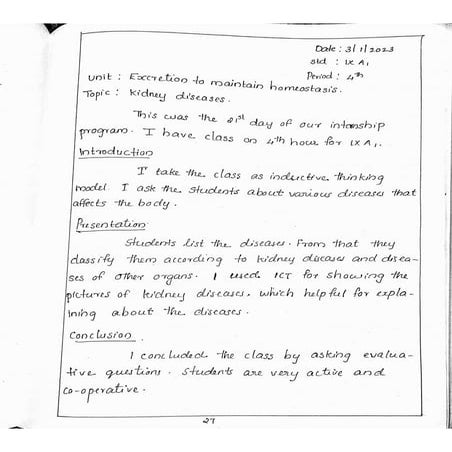 Date : 3/1/2023
std : IX A1
Period : 4th
unit : Excretion to maintain homeostasis.
Topic : kidney diseases.
This was the 21st day of our intenship
program. I have class on 4th hour for IX A1.
Introduction
I take the class as inductive thinking
model. I ask the students about various diseases that
affects the body.
Presentation
Students list the diseases. From that they
classify them according to kidney diseases and disea-
ses of other organs. I used ICT for showing the
pictures of kidney diseases. which helpful for expla-
ining about the diseases.
Conclusion
I concluded the class by asking evalua-
tive questions. Students are very active and
co-operative.
27